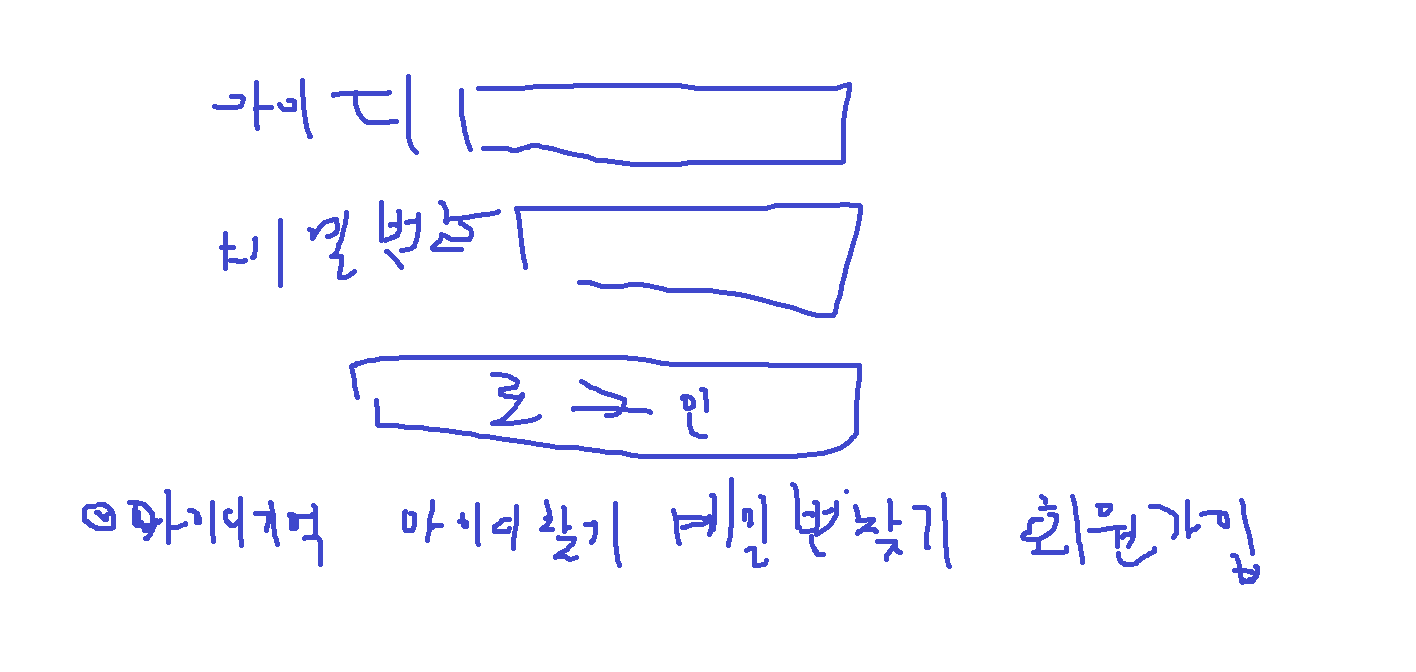 아이디
비밀번호
로그인
아이디기억 아이디찾기 비밀번호찾기 회원가입